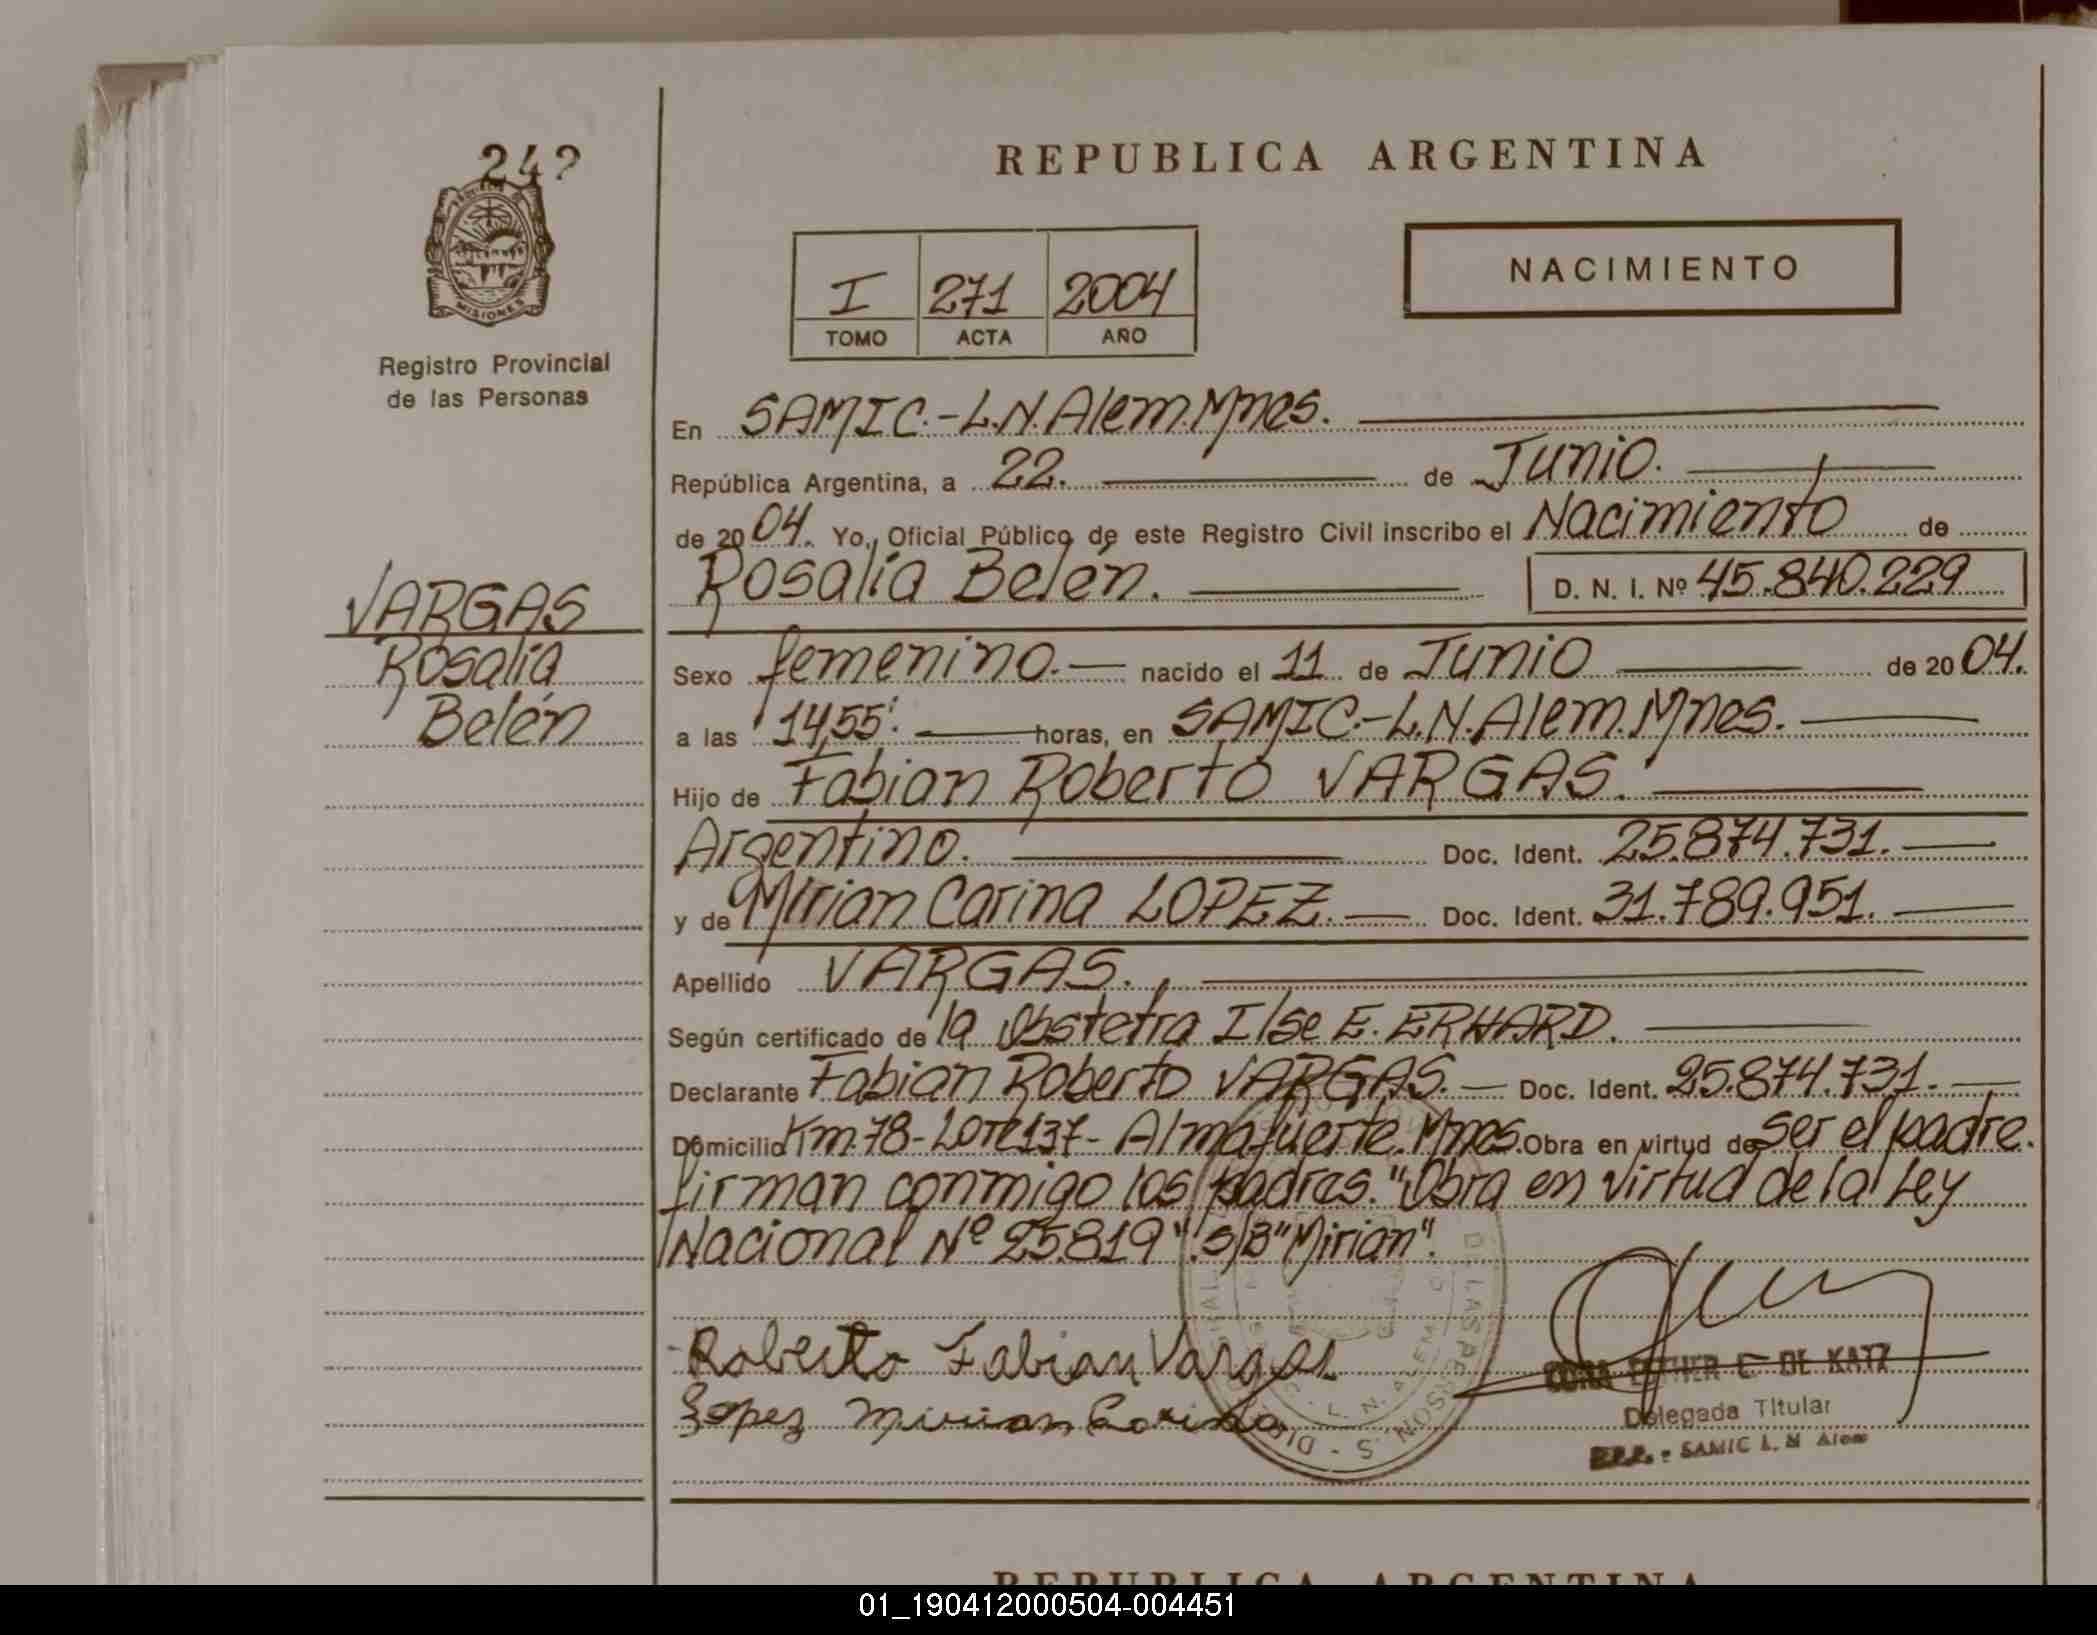 242
MISIONES
Registro Provincial
de las Personas
VARGAS
Rosalía
Belén
REPUBLICA ARGENTINA
I 271 2004
TOMO ACTA AÑO
NACIMIENTO
En SAMIC.-L.N.Alem.Mnes.
República Argentina, a 22. de Junio.
de 2004. Yo, Oficial Público de este Registro Civil inscribo el Nacimiento de
Rosalía Belén. D. N. I. Nº 45.840.229
Sexo femenino. nacido el 11 de Junio de 2004.
a las 14,55'. horas, en SAMIC.-L.N.Alem.Mnes.
Hijo de Fabian Roberto VARGAS.
Argentino. Doc. Ident. 25.874.731.
y de Mirian Carina LOPEZ. Doc. Ident. 31.789.951.
Apellido VARGAS.
Según certificado de la Obstetra Ilse E. ERHARD.
Declarante Fabian Roberto VARGAS. Doc. Ident. 25.874.731.
Domicilio Km.78-Lote137- Almafuerte.Mnes. Obra en virtud de ser el padre.
firman conmigo los padres. "Obra en virtud de la Ley
Nacional Nº 25.819". S/B "Mirian".
Roberto Fabian Vargas.
Lopez Mirian Carina
ESTHER C DE KATZ
Delegada Titular
SAMIC L. N Alem
REPUBLICA ARGENTINA
01_190412000504-004451